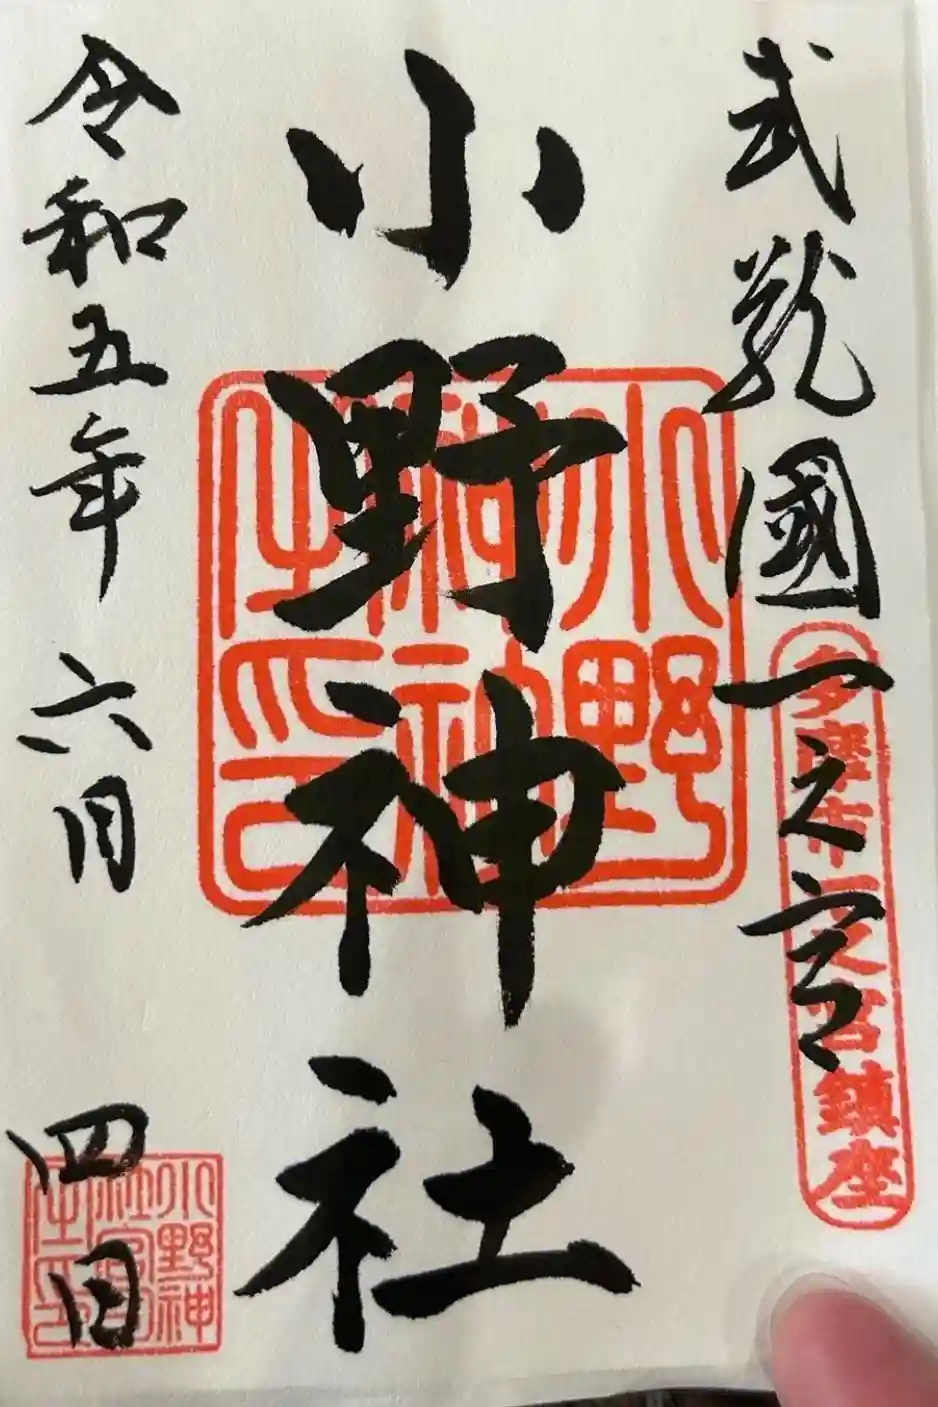 武蔵國一之宮
多摩市一之宮鎮座
小野神社
小野神社之印
令和五年 六月 四日
小野神社宮司之印